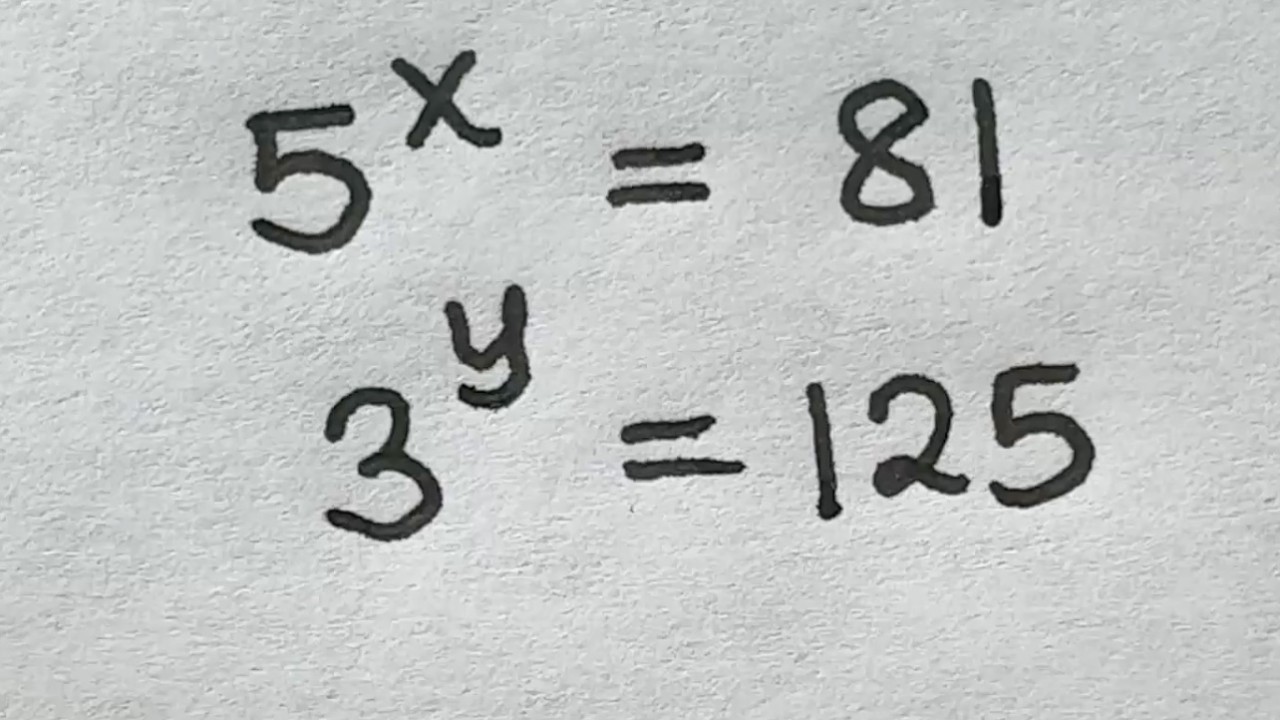 5^x = 81
3^y = 125